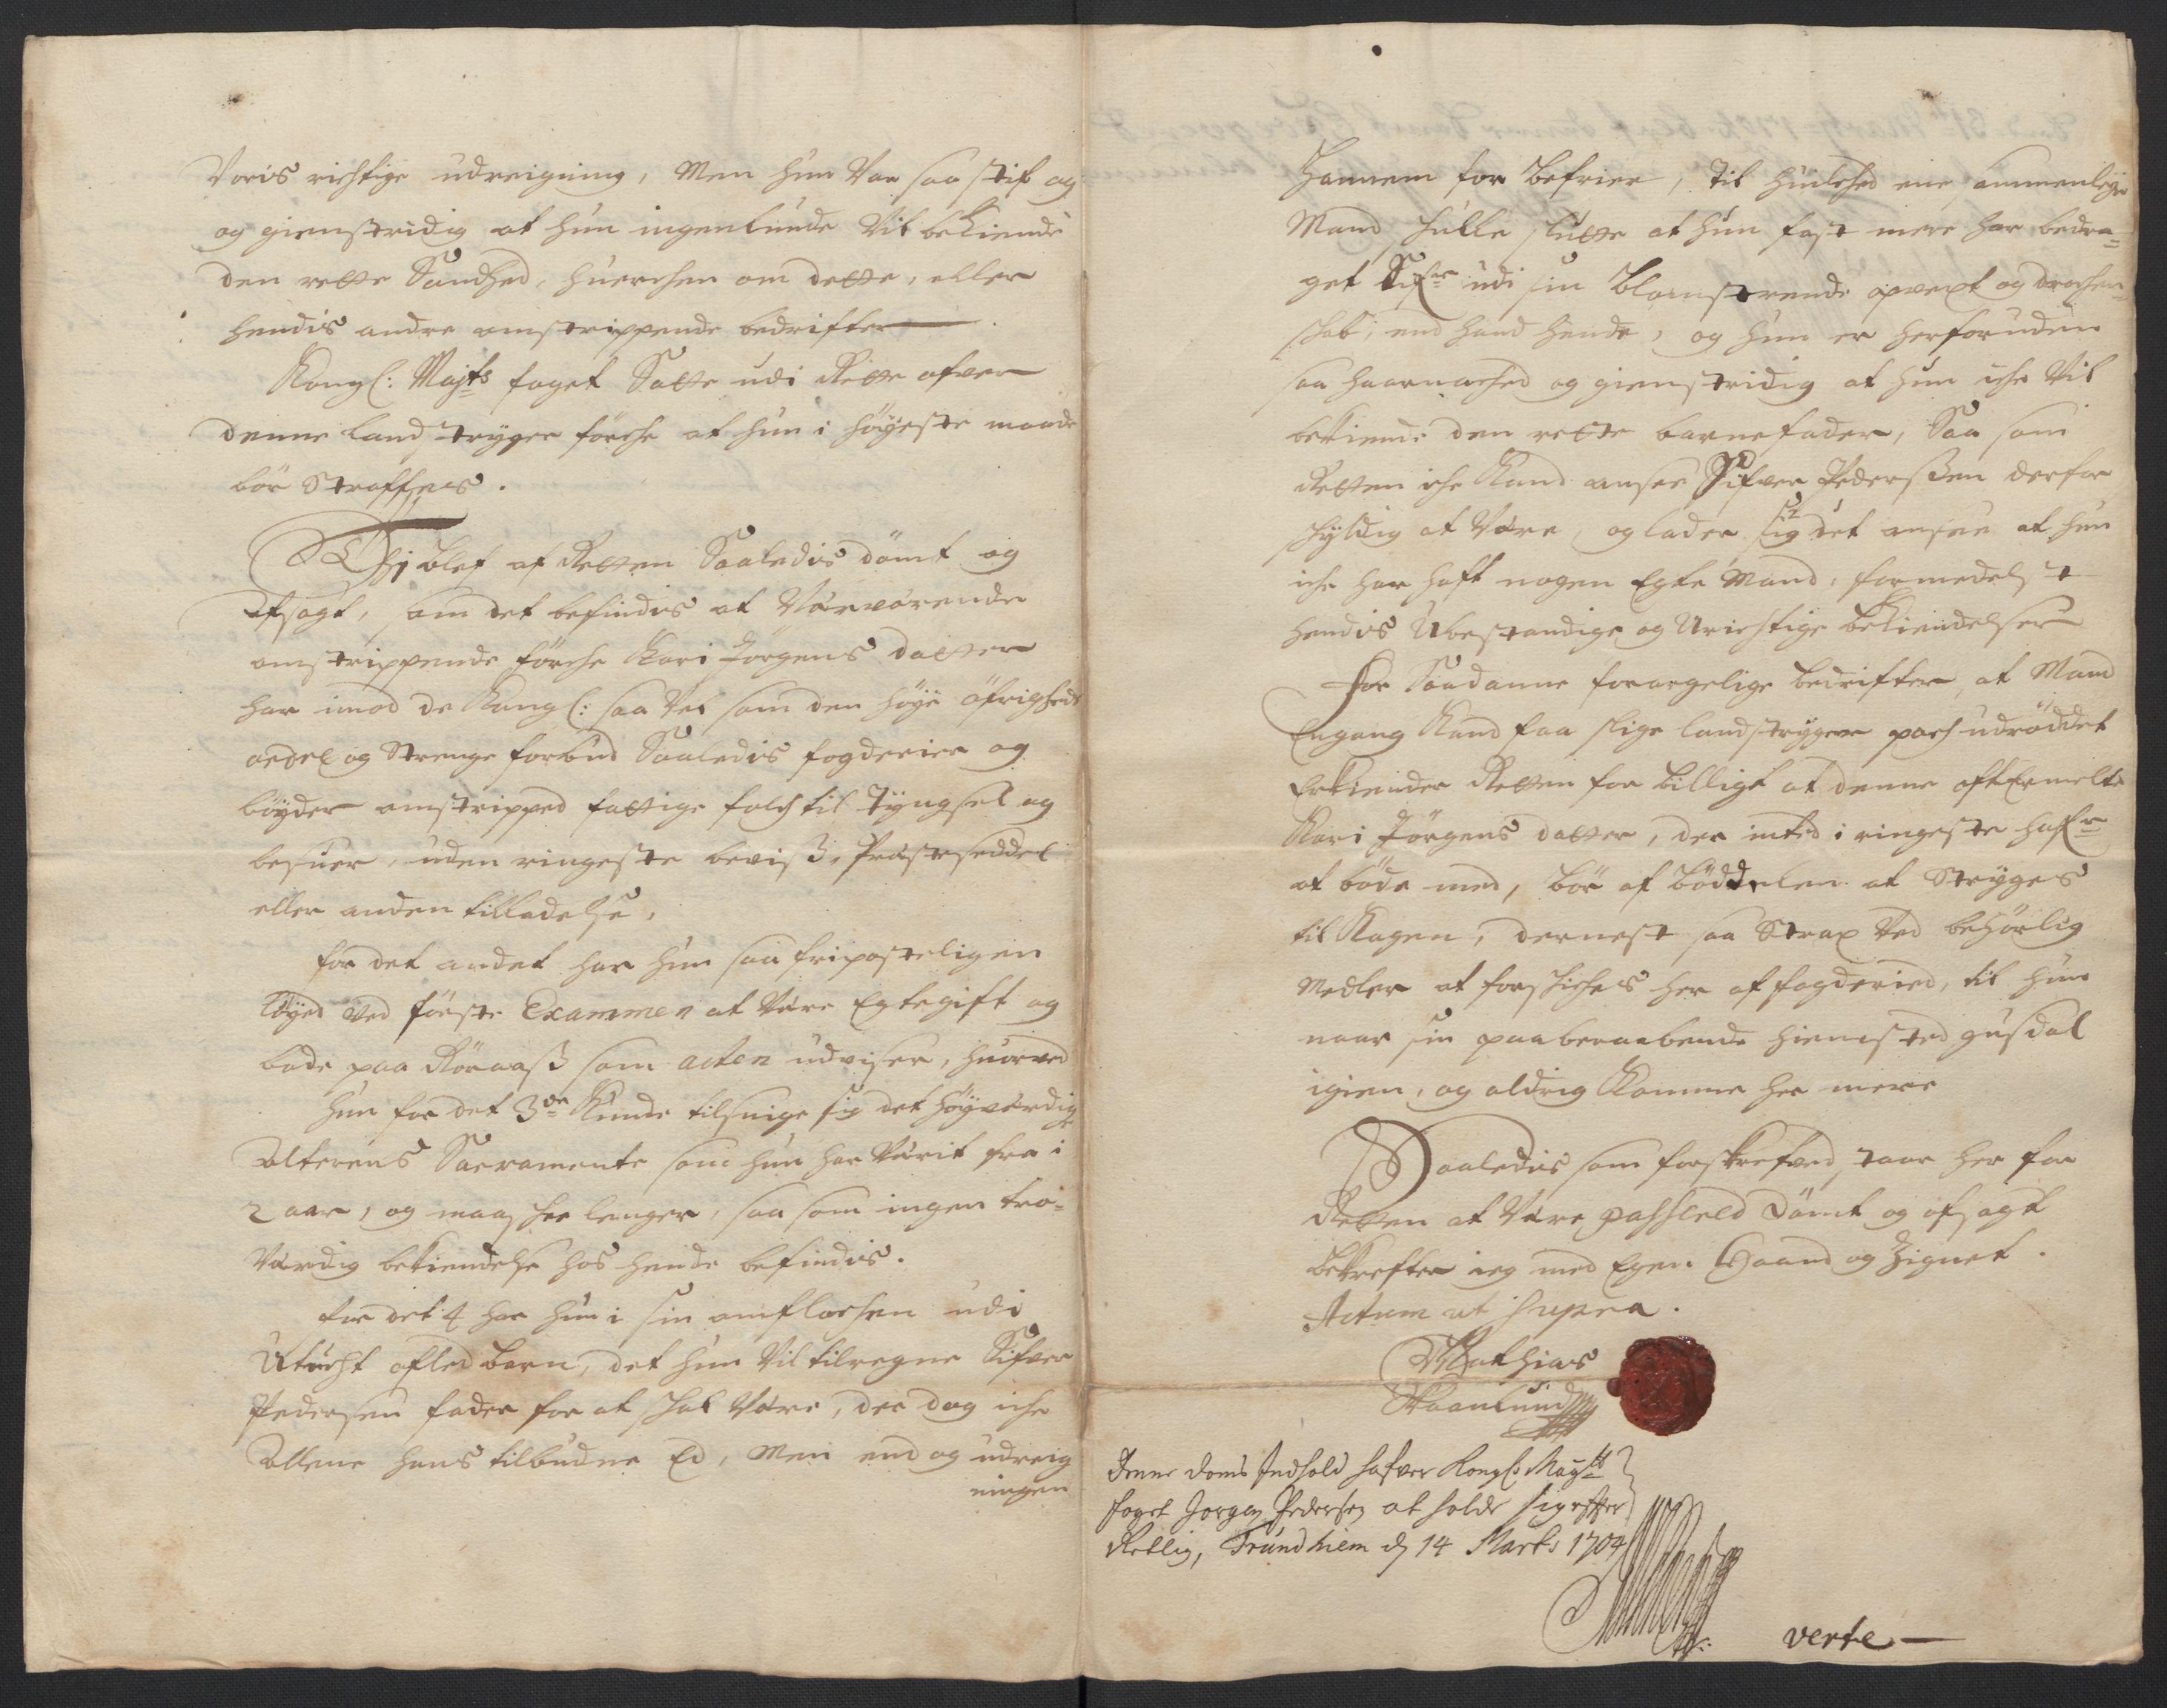 Voris richtige udreigning, Men hun var saa stif og
og gienstridig at hun ingenlunde vil bekiende
den rette Sandhed, huerchen om dette, eller
hendis andre omstrippende bedrifter
Kongl: Majts foget Satte udi Rette ofver
denne landstryger förche at hun i höyeste maade
bör Straffes.
Thi blef af Retten Saaledis dömt og
Afsagt, som det befindis at Nærværende
omstrippende förche Kari Jörgens datter
har imod de Kongl: saa vel som den höye öfrigheds
ordre og Strenge forbud Saaledis fogderier og
böyder omstripped fattige folch til Tyngsel og
besuer, uden ringeste beviß, Præsteseddel
eller anden tilladelse,
for det andet har hun saa friposteligen
löyed ved förste Examen at være Egtegift og
bode paa Röraaß som acten udviser, huorved
hun for det 3de Kunde tilsnige sig det höyværdige
Alterens Sacramente som hun har værit fra i
2 aar, og maaschee lenger, saa som ingen tro-
værdig bekiendelse hos hende befindis.
for det 4 har hun i sin omflachen udi
Utucht afled barn, det hun vil tilregne Sifver
Pedersen fader for at schal være, der dog iche
Allene hans tilbudne Ed, Men end og udreig
ningen
Hannem for befrier, til huilched ene, sammenleyr
Mand schulle slutte at hun fast mere har bedra-
get Sifver udi sin Blomstrende opvext og drochen-
schab, end hand hende, og hun er herforuden
saa haarnached og gienstridig at hun iche vil
bekiende den rette barnefader, Saa som
Retten iche Kand ansee Sifver Pederßen derfor
schyldig at være, og lader sig det ansee at hun
iche har haft nogen Egte Mand, formedelst
hendis Ubestandige og Urichtige bekiendelser
For Saadanne forargelige bedrifter, at Mand
Engang Kand faa slige landstryger pach udröddet
Erkiender Retten for billigt at denne oftermelte
Kari Jörgens datter, der inted i ringeste hafr
at böde med, bör af böddelen at Stryges
til Kagen, dernest saa Strax ved behörlig
Medler at forschiches her af fogderied, til hun
naar sin paaberaabende hiemsted gusdal
igien, og aldrig Komme her mere
Saaledis som forskrefved staar her for
Retten at være passered Dömt og afsagt
bekrefter ieg med Egen Haand og Zignet.
Actum ut supra.
Mathias
Skaanlund
Denne doms Indhold hafver Kongl: Mayts
foget Jorgen Pedersen at holde sig efter
Retlig, Trundhiem d 14 Marti 1704
verte